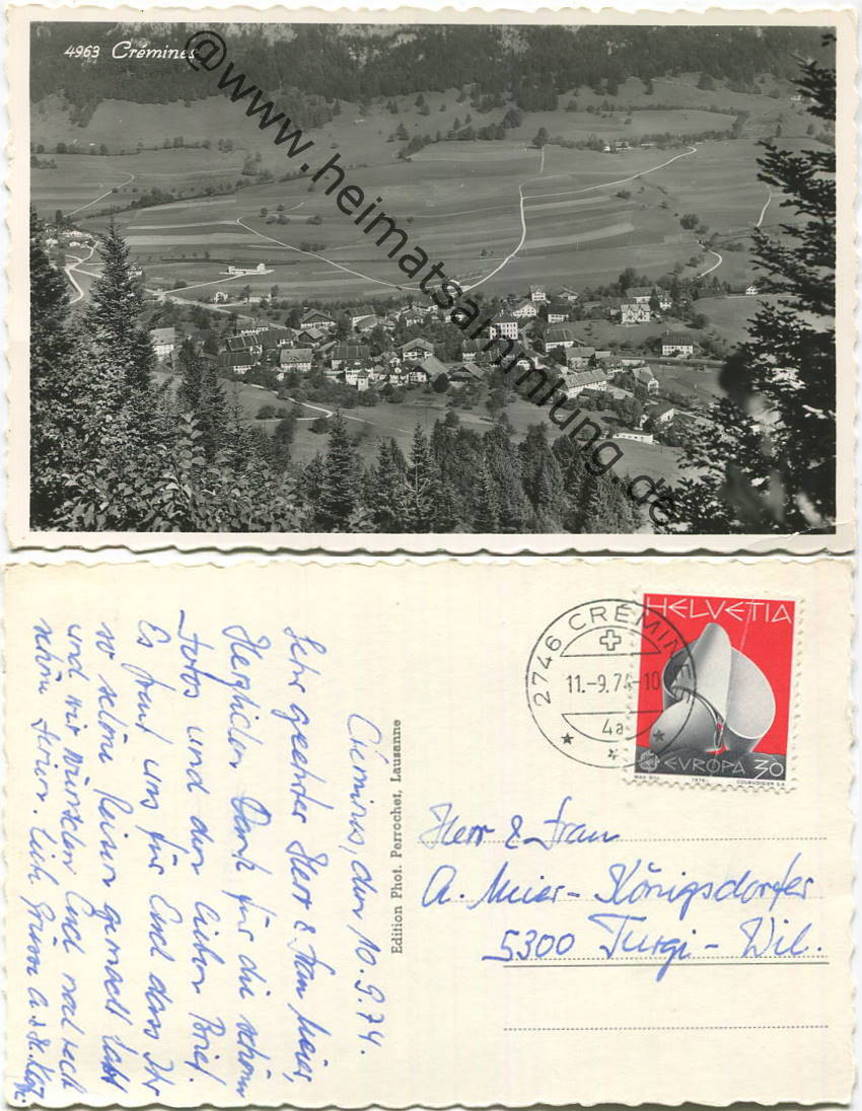 4963 Crémines
@www.heimatsammlung.de
Crémines, den 10.9.74.
Sehr geehrter Herr & Frau Meier,
Herzlichen Dank für die schönen
Fotos und den lieben Brief.
Es freut uns für Euch dass Ihr
so schöne Reisen gemacht habt
und wir wünschen Euch noch rech
schöne Ferien. Lieb Grüsse
Edition Phot. Perrochet, Lausanne
2746 CRÉMINES
11.-9.74-10
4a
HELVETIA
EVROPA 30
MAX BILL 1974 COURVOISIER S.A.
Herr & Frau
A. Meier-Königsdorfer
5300 Turgi-Wil.